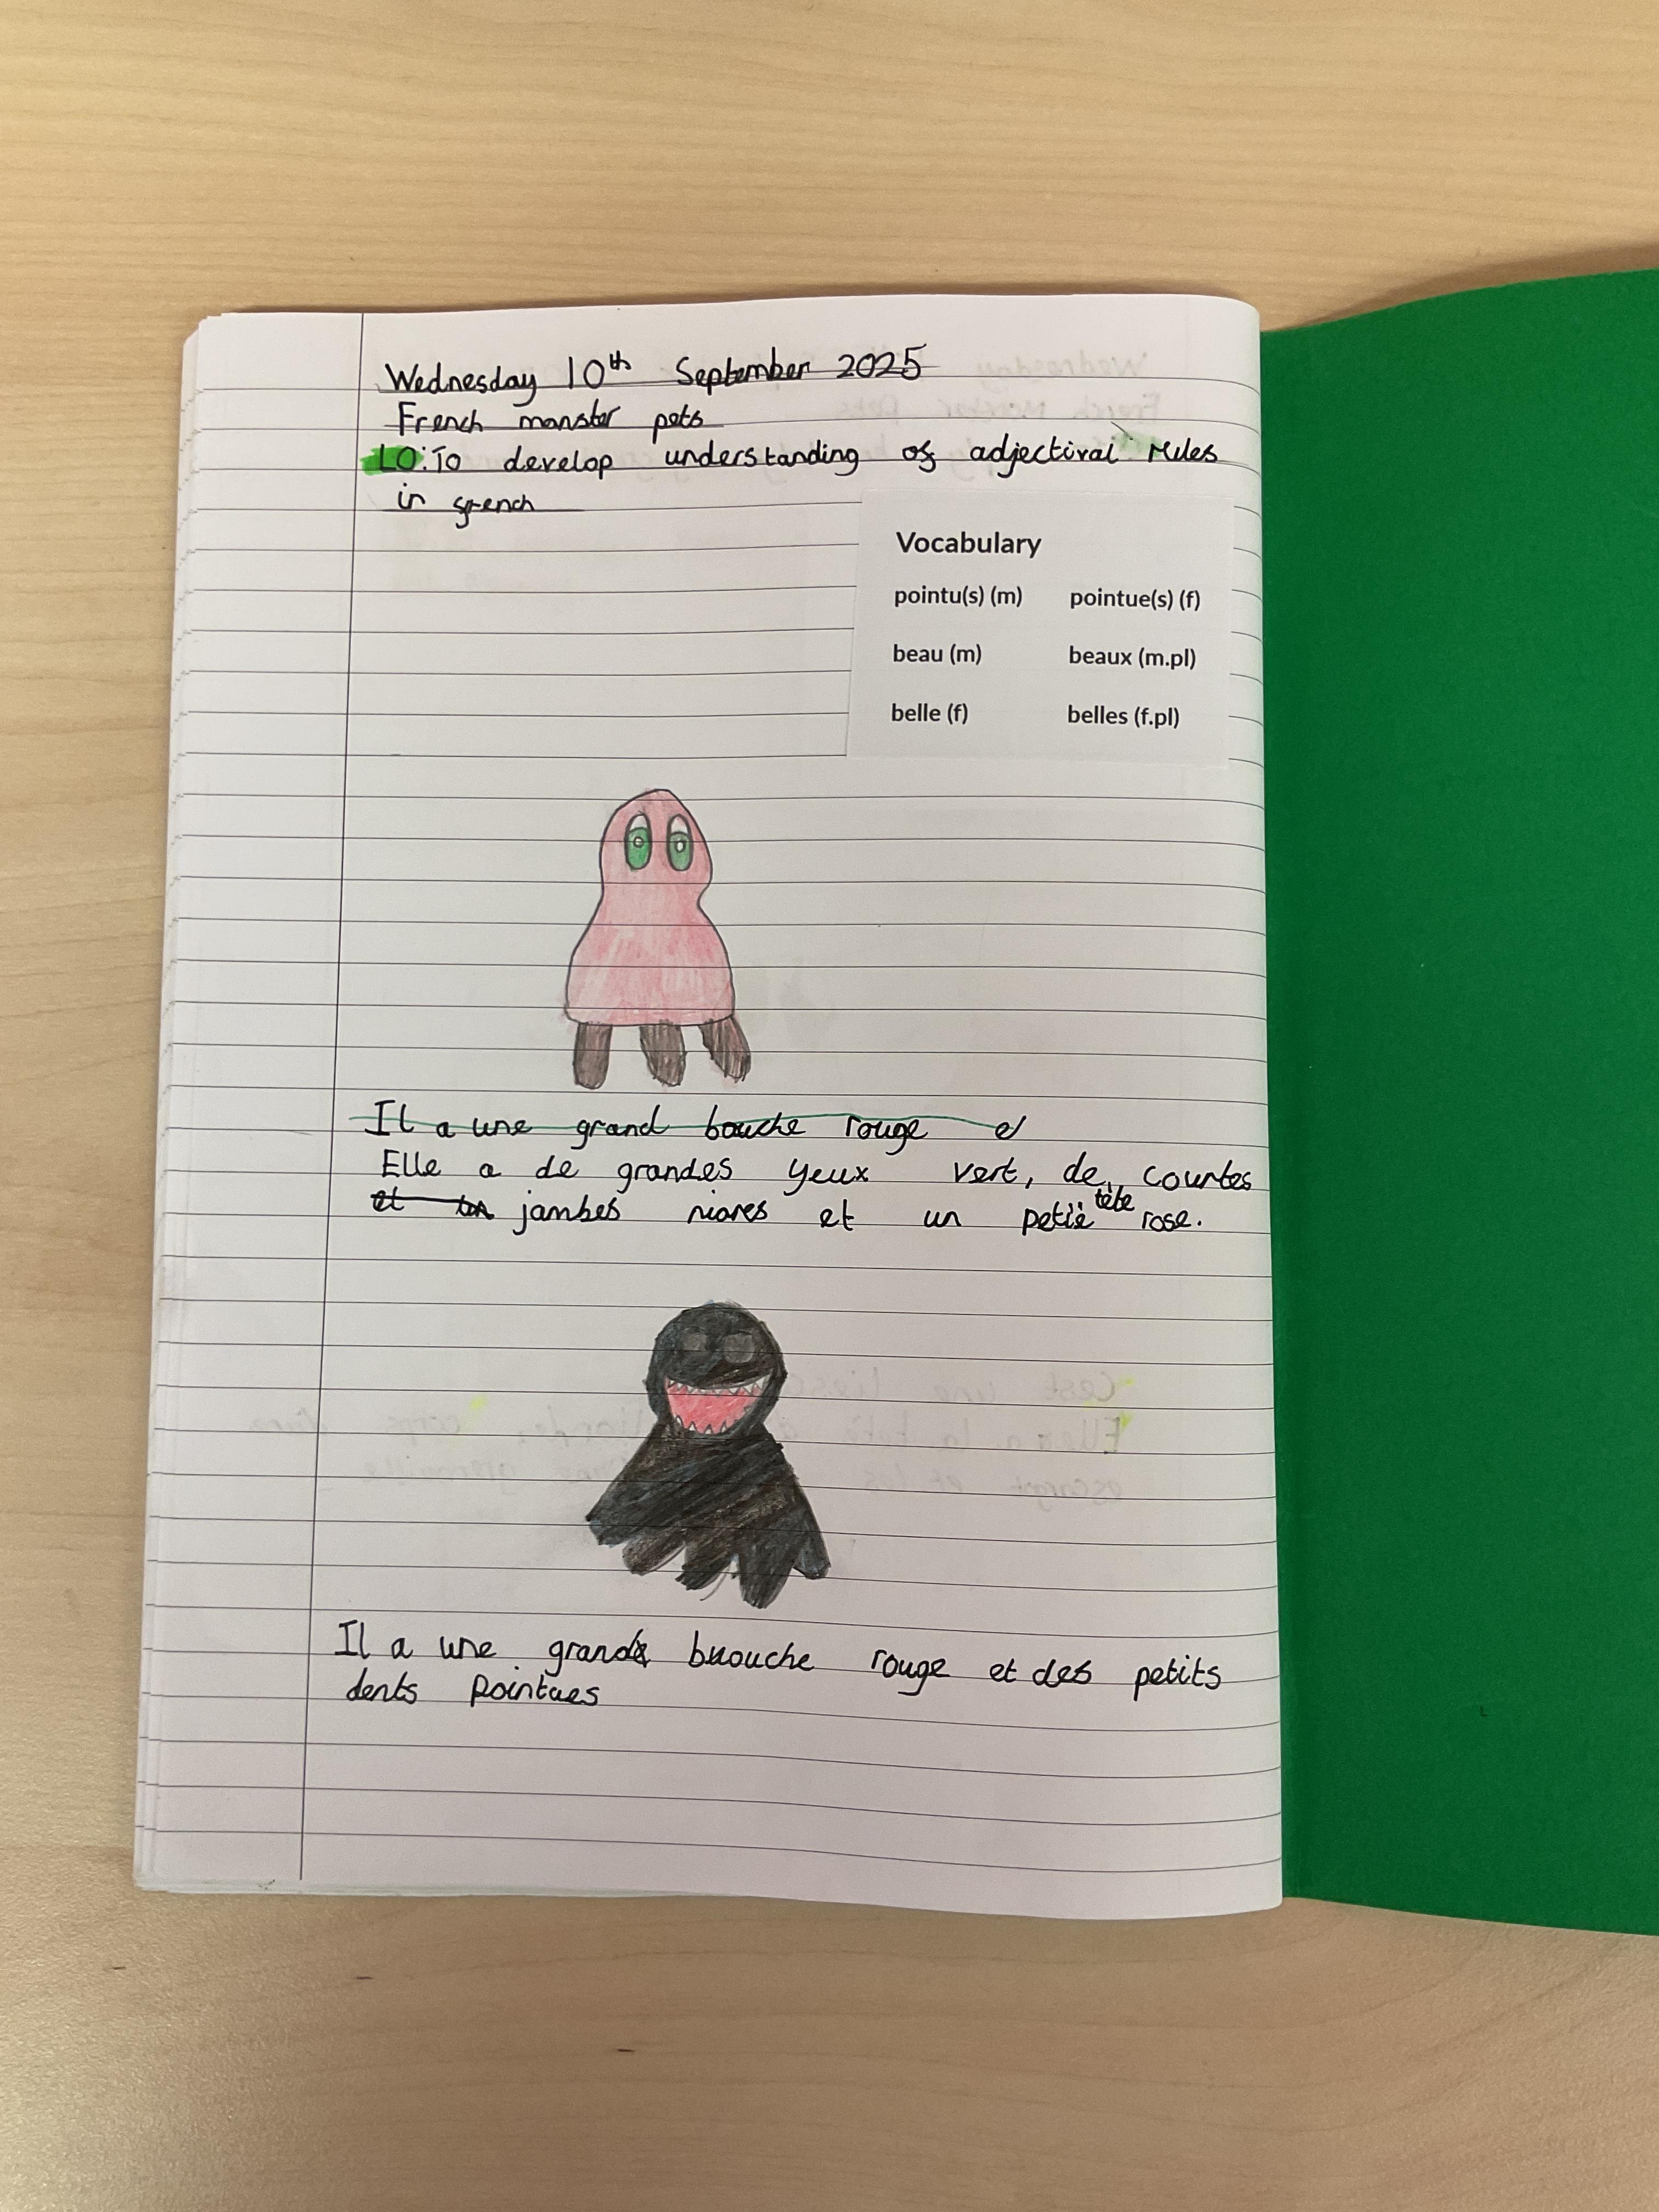 Wednesday 10th September 2025
French monster pets
LO: To develop understanding of adjectival rules
in french
Vocabulary
pointu(s) (m) pointue(s) (f)
beau (m) beaux (m.pl)
belle (f) belles (f.pl)
Il a une grand bouche rouge e
Elle a de grandes yeux vert, de courtes
et jambes niores et un petit tête rose.
Il a une grande buouche rouge et des petits
dents pointues